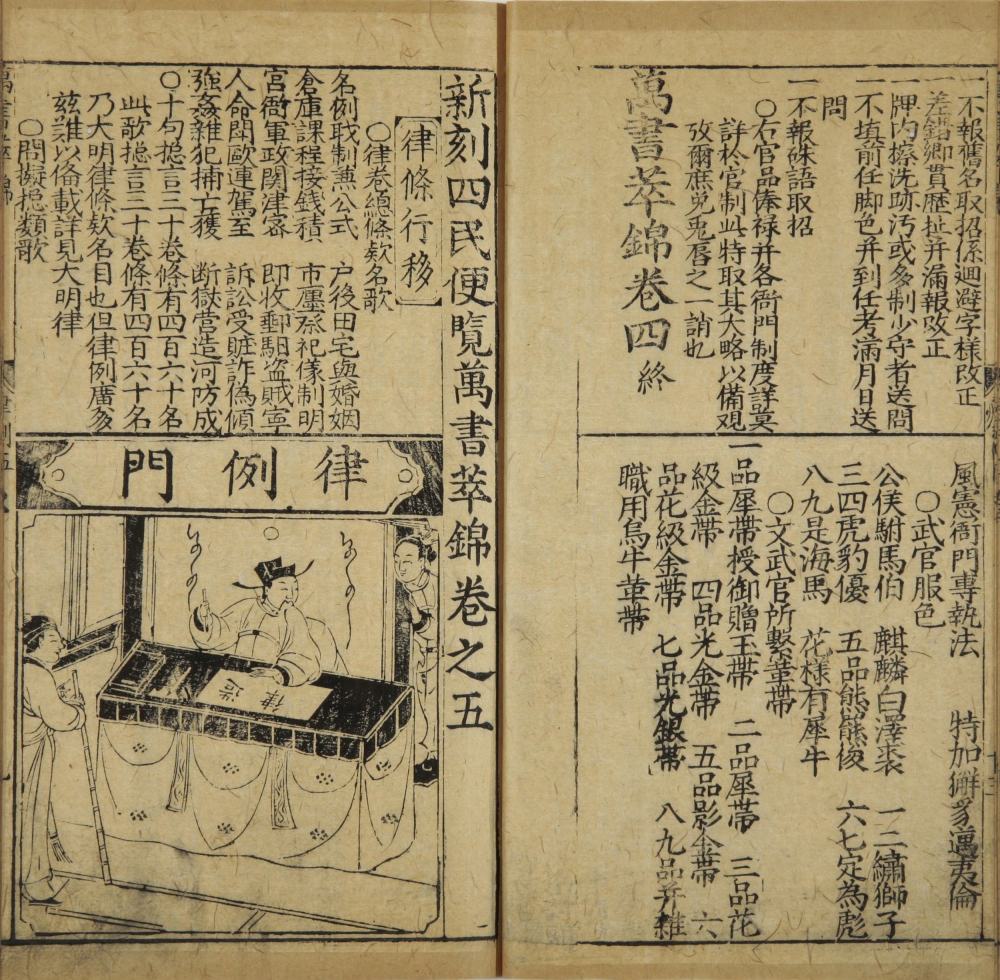 一不報舊名取招係迴避字樣改正
一差錯鄉貫歷址并漏報改正
一牌内擦洗跡汚或多制少守者送問
一不填前任脚色并到任考滿月日送
問
一不報硃語取招
○石官品俸禄并各衙門制度詳莫
詳於官制此特取其大略以備观
攷爾庶免兎唇之一誚也
萬書萃錦卷四終
風憲衙門專執法 特加獬豸邁夷倫
○武官服色
公侯駙馬伯 麒麟白澤裘 一二繡獅子
三四虎豹優 五品熊羆俊 六七定為彪
八九是海馬 花様有犀牛
○文武官所繫革帶
一品犀帶授御贈玉帶 二品犀帶 三品花
級金帶 四品光金帶 五品影金帶 六
品花級金帶 七品光銀帶 八九品并雜
職用烏牛革帶
新刻四民便覽萬書萃錦卷之五
律條行移
○律卷總條欵名歌
名例戝制兼公式 户後田宅與婚姻
倉庫課程接錢積 市廛祭祀儀制明
宫衙軍政関津密 即收郵馹盗賊寕
人命閗歐連駡至 訴訟受賍詐偽傾
強姦雜犯捕亡獲 断獄营造河防成
○十句揔言三十卷條有四百六十名
此歌揔言三十卷條有四百六十名
乃大明律條欵名目也但律例廣多
兹難以俻載詳見大明律
○問擬揔類歌
律例門
律造